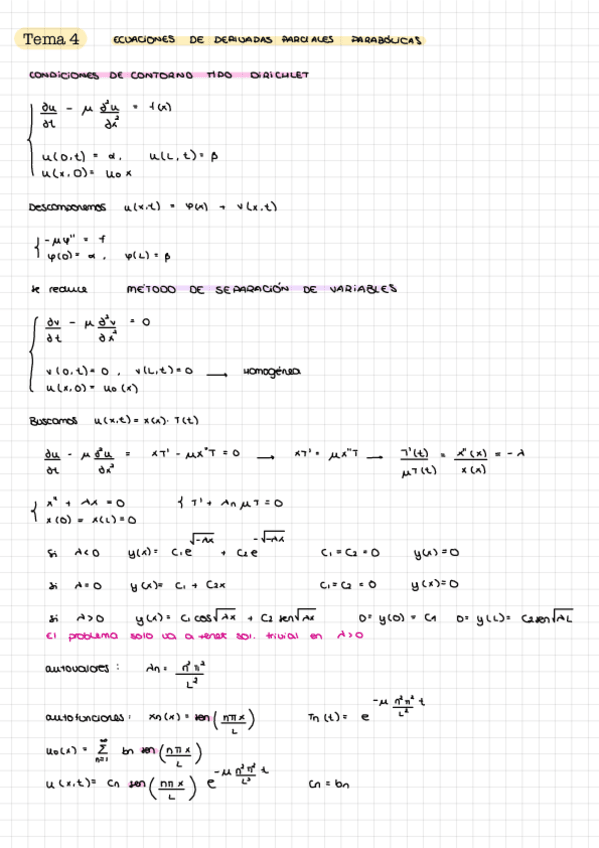 Tema 4 ECUACIONES DE DERIVADAS PARCIALES PARABÓLICAS
CONDICIONES DE CONTORNO TIPO DIRICHLET
∂u/∂t - μ ∂²u/∂x² = f(x)
u(0,t) = α, u(L,t) = β
u(x,0) = u₀ x
Descomponemos u(x,t) = φ(x) + v(x,t)
-μφ'' = f
φ(0) = α, φ(L) = β
se reduce MÉTODO DE SEPARACIÓN DE VARIABLES
∂v/∂t - μ ∂²v/∂x² = 0
v(0,t) = 0, v(L,t) = 0 → homogénea
u(x,0) = u₀(x)
Buscamos u(x,t) = x(x)·T(t)
∂u/∂t - μ ∂²u/∂x² = XT' - μX''T = 0 → XT' = μX''T → T'(t)/μT(t) = X''(x)/X(x) = -λ
X'' + λX = 0 { T' + λn μT = 0
X(0) = X(L) = 0
Si λ<0 y(x) = C₁e^√-λx + C₂e^-√-λx C₁ = C₂ = 0 y(x) = 0
Si λ=0 y(x) = C₁ + C₂x C₁ = C₂ = 0 y(x) = 0
Si λ>0 y(x) = C₁cos√λx + C₂ sen√λx 0 = y(0) = C₁ 0 = y(L) = C₂sen√λL
El problema solo va a tener sol. trivial en λ>0
autovalores: λn = n²π²/L²
autofunciones: Xn(x) = sen(nπx/L) Tn(t) = e^-μ n²π²/L² t
u₀(x) = ∞Σn=1 bn sen(nπx/L)
u(x,t) = Cn sen(nπx/L) e^-μ n²π²/L² t Cn = bn